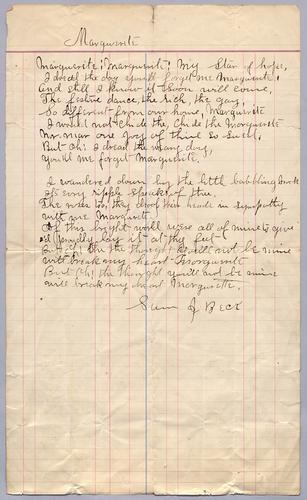 Marguerite
Marguerite, Marguerite, My Star of hope,
I dread the day you'll forget me Marguerite,
And still I know it soon will come,
The festive dance, the rich, the gay,
So different from our home, Marguerite
I would not chide the Marguerite
Nor mar one joy of thine so sweet,
But Oh! I dread the day,
You'll me forget Marguerite,
I wandered down by the little babbling brook
It's every ripple speaks of thee
The roses too, they droop their heads in sympathy
with me Marguerite
If this bright world were all of mine to give
I'd proudly lay it at thy feet
But Oh! the thought you'll not be mine
will break my heart Marguerite
But Oh! the thought you'll not be mine
will break my heart Marguerite.
Sam J Beck